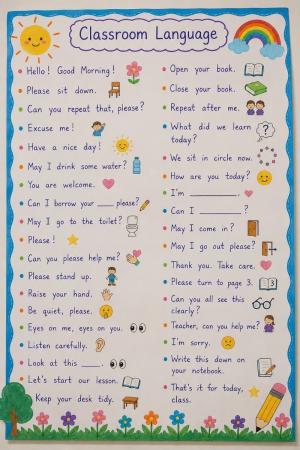 Classroom Language
Hello! Good Morning!
Please sit down.
Can you repeat that, please?
Excuse me!
Have a nice day!
May I drink some water?
You are welcome.
Can I borrow your ____ please?
May I go to the toilet?
Please!
Can you please help me?
Please stand up.
Raise your hand.
Be quiet, please.
Eyes on me, eyes on you.
Listen carefully.
Look at this ____.
Let's start our lesson.
Keep your desk tidy.
Open your book.
Close your book.
Repeat after me.
What did we learn
today?
We sit in circle now.
How are you today?
I'm ________.
Can I ________?
May I come in?
May I go out please?
Thank you. Take care.
Please turn to page 3.
3
Can you all see this
clearly?
Teacher, can you help me?
I'm sorry.
Write this down on
your notebook.
That's it for today,
class.